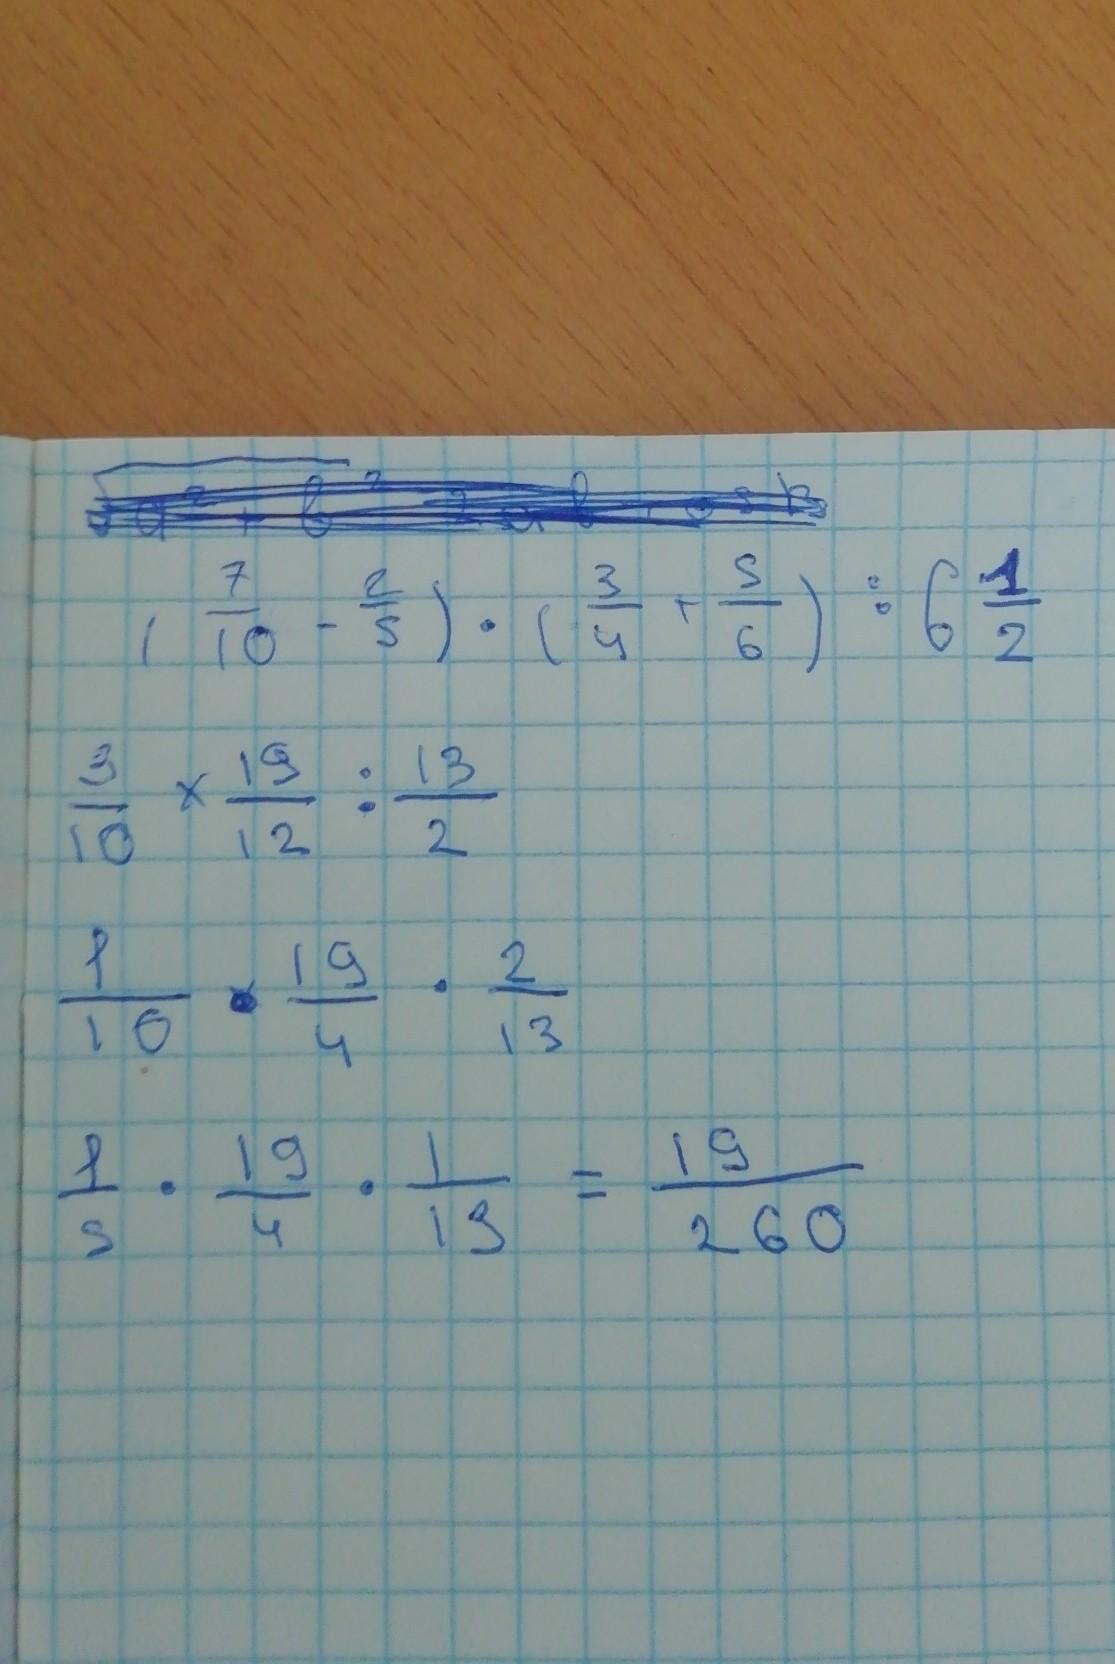 ( 7/10 - 2/5 ) · ( 3/4 + 5/6 ) ÷ 6 1/2
3/10 × 19/12 : 13/2
1/10 · 19/4 · 2/13
1/5 · 19/4 · 1/13 = 19/260